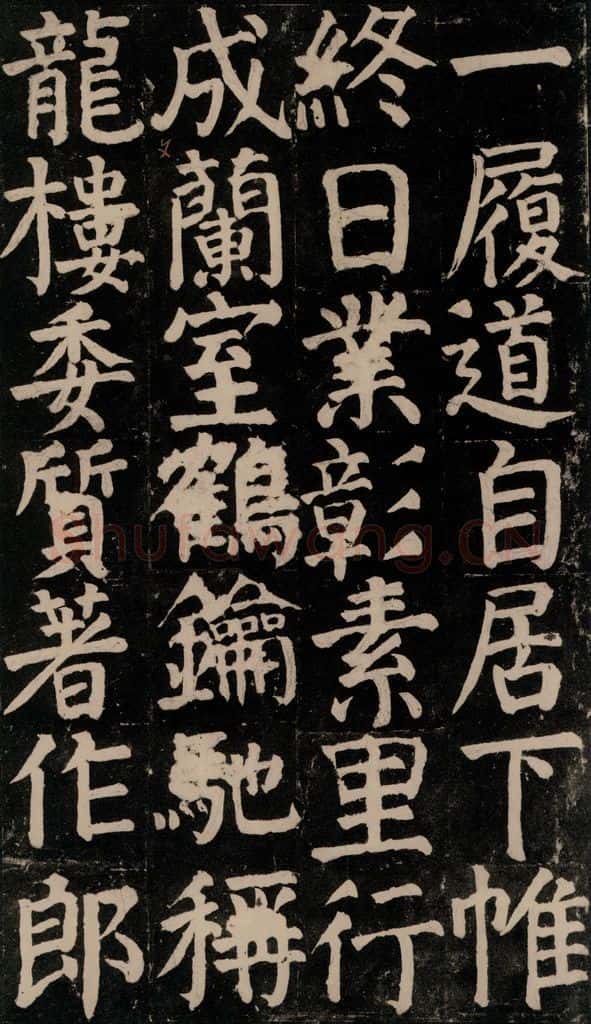 一履道自居下帷
終日業彰素里行
成蘭室鶴鑰馳稱
龍樓委質著作郎
shufawang.CN